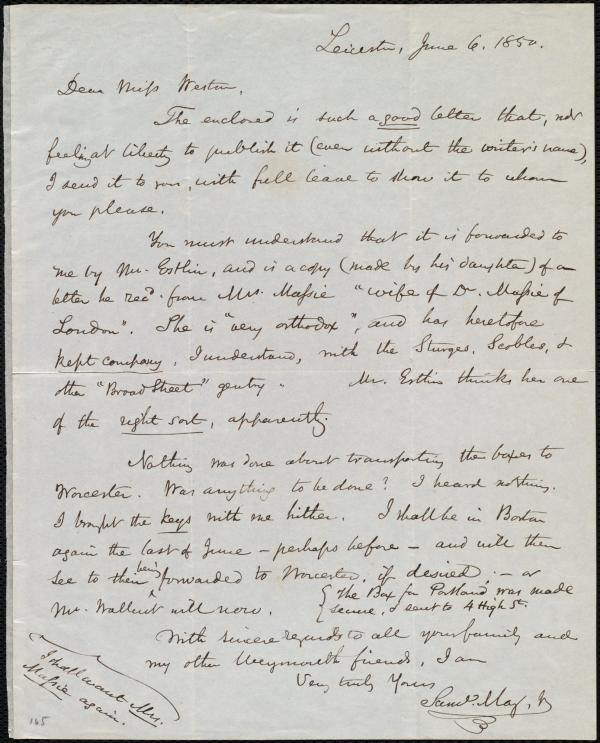 Leicester, June 6. 1850.
Dear Miss Weston,
The enclosed is such a good letter that, not
feeling at liberty to publish it (even without the writer's name),
I send it to you, with full leave to show it to whom
you please.
You must understand that it is forwarded to
me by Mr. Estlin, and is a copy (made by his daughter) of a
letter he recd. from Mrs. Massie "wife of Dr. Massie of
London". She is "very orthodox", and has heretofore
kept company, I understand, with the Sturges, Scobles, &
other "Broad Street" gentry. Mr. Estlin thinks her one
of the right sort, apparently.
Nothing was done about transporting the boxes to
Worcester. Was anything to be done? I heard nothing.
I brought the keys with me hither. I shall be in Boston
again the last of June - perhaps before - and will then
see to their being forwarded to Worcester, if desired; - or
Mr. Wallcut will now. {The Box for Portland was made
secure, & sent to 4 High St.
With sincere regards to all your family and
my other Weymouth friends, I am
Very truly Yours
Saml. May, Jr
I shall want Mrs.
Massie again.
165